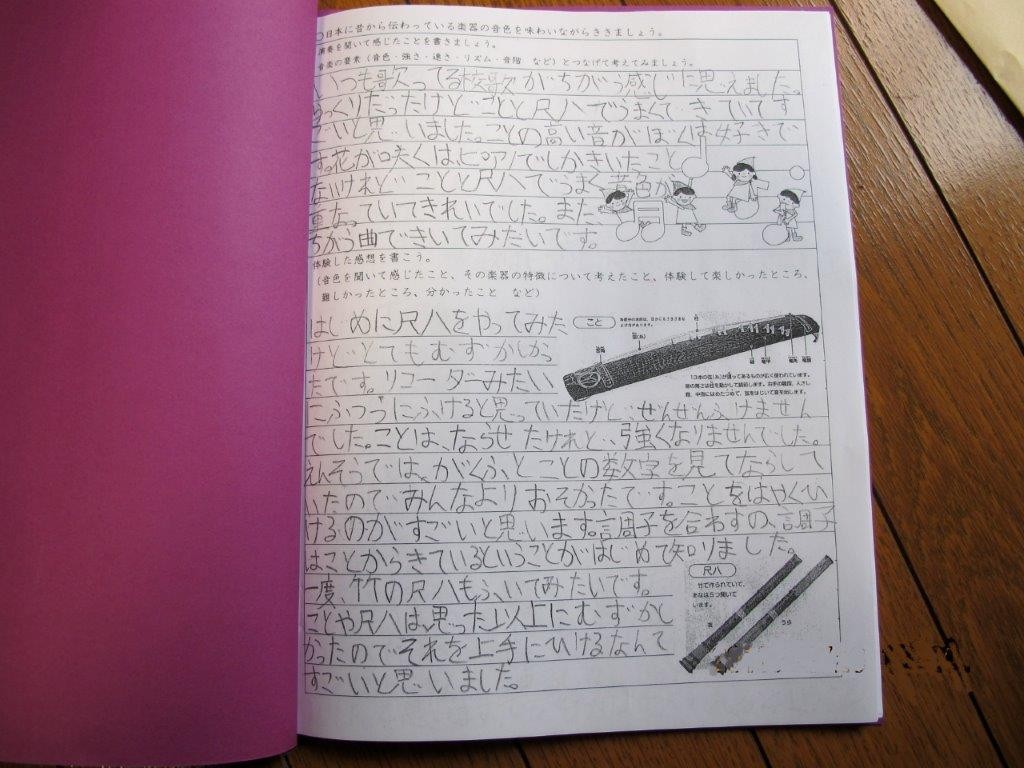 日本に昔から伝わっている楽器の音色を味わいながらききましょう。
演奏を聞いて感じたことを書きましょう。
音楽の要素(音色・強さ・速さ・リズム・音階 など)とつなげて考えてみましょう。
いつも歌ってる校歌がちがう感じに思えました。
ゆっくりだったけどことと尺八でうまくてきいてす
ごいと思いました。ことの高い音がぼくは好きで
す。花が咲くはピアノでしかきいたこと
ないけれどことと尺八でうまく音色が
重なっていてきれいでした。また
ちがう曲できいてみたいです。
体験した感想を書こう。
(音色を聞いて感じたこと、その楽器の特徴について考えたこと、体験して楽しかったところ、
難しかったところ、分かったこと など)
はじめに尺八をやってみた
けどとてもむずかしかっ
たです。リコーダーみたい
にふつうにふけると思っていたけど、ぜんぜんふけません
でした。ことは、ならせたけれど、強くなりませんでした。
えんそうでは、がくふとことの数字を見てならして
いたのでみんなよりおそかたです。ことをはやくひ
けるのがすごいと思います。調子を合わすの、調子
はことからきているということがはじめて知りました。
一度、竹の尺八もふいてみたいです。
ことや尺八は、思った以上にむずかし
かったのでそれを上手にひけるなんて
すごいと思いました。
こと
尺八
竹で作られていて、
あなは5つ開いて
います。
表
うら